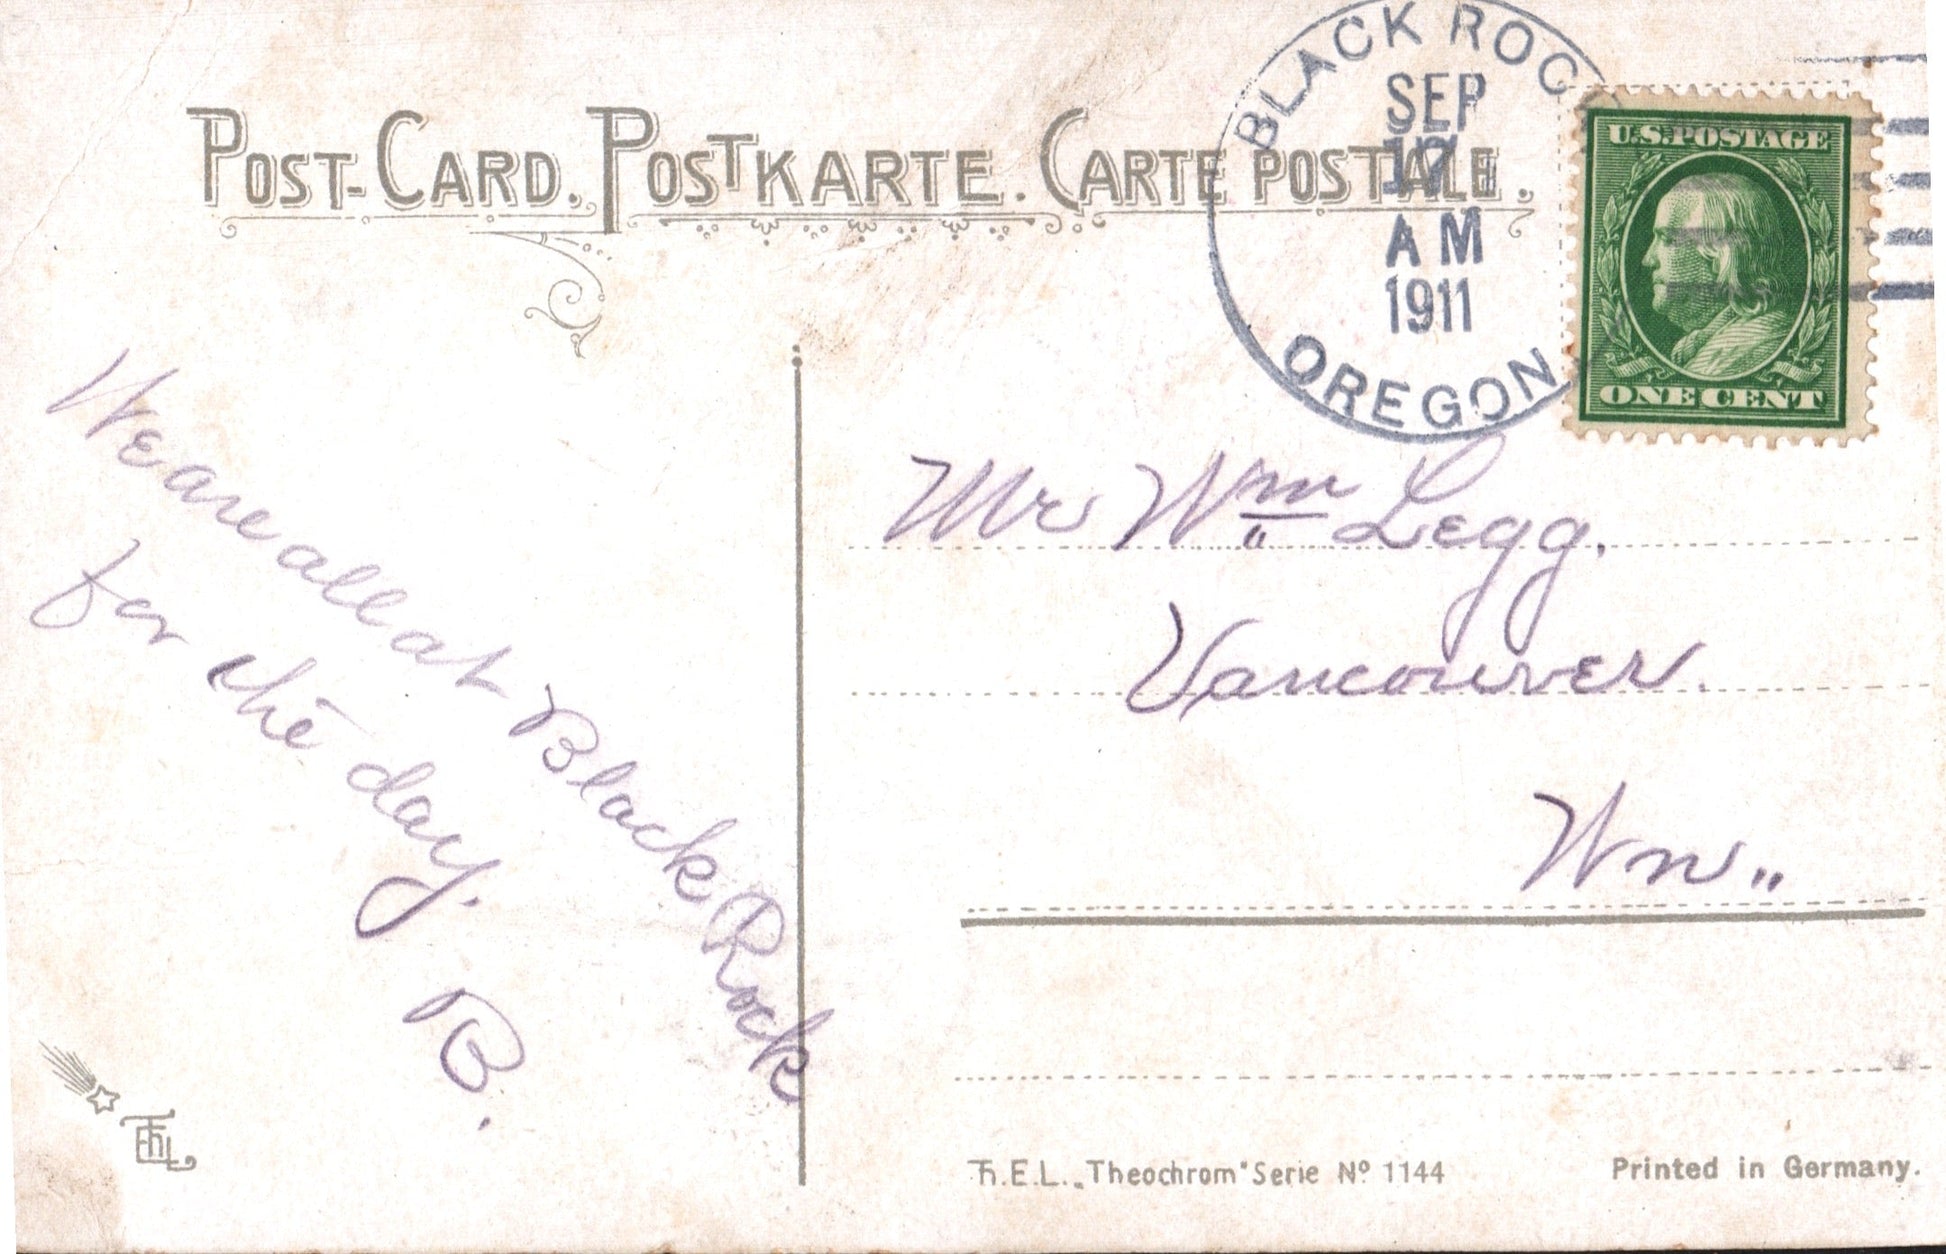 POST-CARD. POSTKARTE. CARTE POSTALE.
BLACK ROC
SEP
17
AM
1911
OREGON
U.S. POSTAGE
ONE CENT
We are all at Black Rock
for the day.
B.
Mr Wm Legg,
Vancouver.
Wn.
Th.E.L. „Theochrom" Serie No 1144
Printed in Germany.